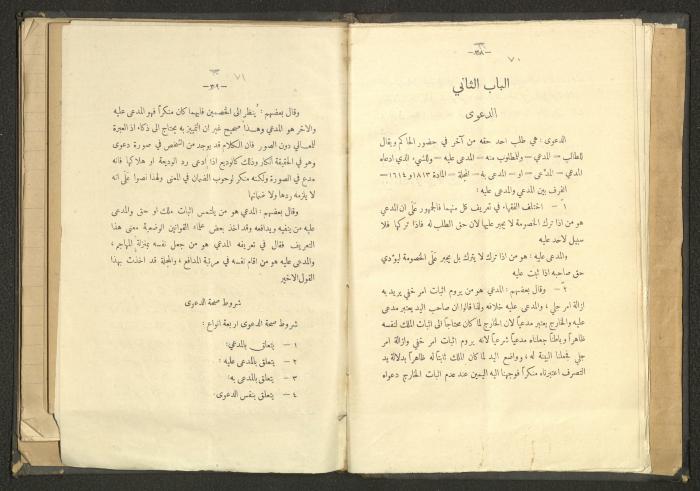 ٣٨
٧٠
الباب الثاني
الدعوى
الدعوى: هي طلب احد حقه من آخر في حضور الحاكم ويقال
للطالب – المدعي – وللمطلوب منه – المدعى عليه – وللشيء الذي ادعاه
المدعي – المدّعى – او – المدعى به – المجلة – المادة ١٦١٣ و ١٦١٤ –
الفرق بين المدعي والمدعى عليه:
١ – اختلف الفقهاء في تعريف كل منهما فالجمهور عَلَى ان المدعي
هو من اذا ترك الخصومة لا يجبر عليها لان حق الطلب له فاذا تركها فلا
سبيل لاحد عليه
والمدعى عليه: هو من اذا ترك لا يترك بل يجبر عَلَى الخصومة ليؤدي
حق صاحبه اذا ثبت عليه
٢ – وقال بعضهم: المدعي هو من يروم اثبات امر خفي يريد به
ازالة امر جلي، والمدعى عليه خلافه ولذا قالوا ان صاحب اليد يعتبر مدعى
عليه والخارج يعتبر مدعياً لان الخارج لما كان محتاجاً الى اثبات الملك لنفسه
ظاهراً وباطناً جعلناه مدعياً شرعياً لانه يروم اثبات امر خفي وازالة امر
جلي فجعلنا البينة له، وواضع اليد لما كان الملك ثابتاً له ظاهراً بدلالة يد
التصرف اعتبرناه منكراً فوجهنا اليه اليمين عند عدم اثبات الخارج دعواه
٣٩
٧١
وقال بعضهم: يُنظر الى الخصمين فايهما كان منكراً فهو المدعى عليه
والاخر هو المدعي وهذا صحيح غير ان التمييز به يحتاج الى ذكاء اذ العبرة
للمعاني دون الصور فان الكلام قد يوجد من الشخص في صورة دعوى
وهو في الحقيقة انكار وذلك كالوديع اذا ادعى رد الوديعة او هلاكها فانه
مدع في الصورة ولكنه منكر لوجوب الضمان في المعنى ولهذا نصوا عَلَى انه
لا يلزمه ردها ولا ضمانها
وقال بعضهم: المدعي هو من يلتمس اثبات ملك او حق والمدعى
عليه من ينفيه ويدافعه وقد اخذ بعض علماء القوانين الوضعية معنى هذا
التعريف فقال في تعريفه المدعي هو من جعل نفسه بمنزلة المهاجم،
والمدعى عليه هو من اقام نفسه في مرتبة المدافع، والمجلة قد اخذت بهذا
القول الاخير
شروط صحة الدعوى
شروط صحة الدعوى اربعة انواع:
١ – يتعلق بالمدعي:
٢ – يتعلق بالمدعى عليه:
٣ – يتعلق بالمدعى به:
٤ – يتعلق بنفس الدعوى.